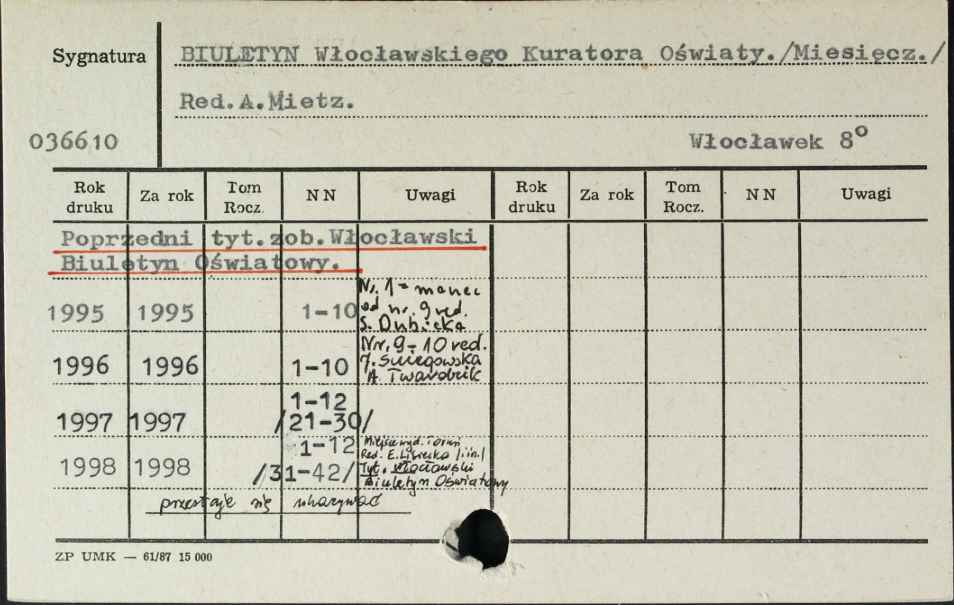 Sygnatura
BIULETYN Włocławskiego Kuratora Oświaty./Miesięcz./
Red.A.Mietz.
036610
Włocławek 8°
Rok druku Za rok Tom Rocz. NN Uwagi Rok druku Za rok Tom Rocz. NN Uwagi
Poprzedni tyt.zob.Włocławski
Biuletyn Oświatowy.
Nr. 1 = marzec
1995 1995 1-10 od nr. 9 red.
S. Dubicka
Nr. 9-10 red.
1996 1996 1-10
A. Twarobzik
1-12
1997 1997 /21-30/
1-12
Red. E. Lisiecka /i in./
1998 1998 /31-42/ Tyt. Włocławski
Biuletyn Oświatowy
przestaje się ukazywać
ZP UMK — 61/87 15 000